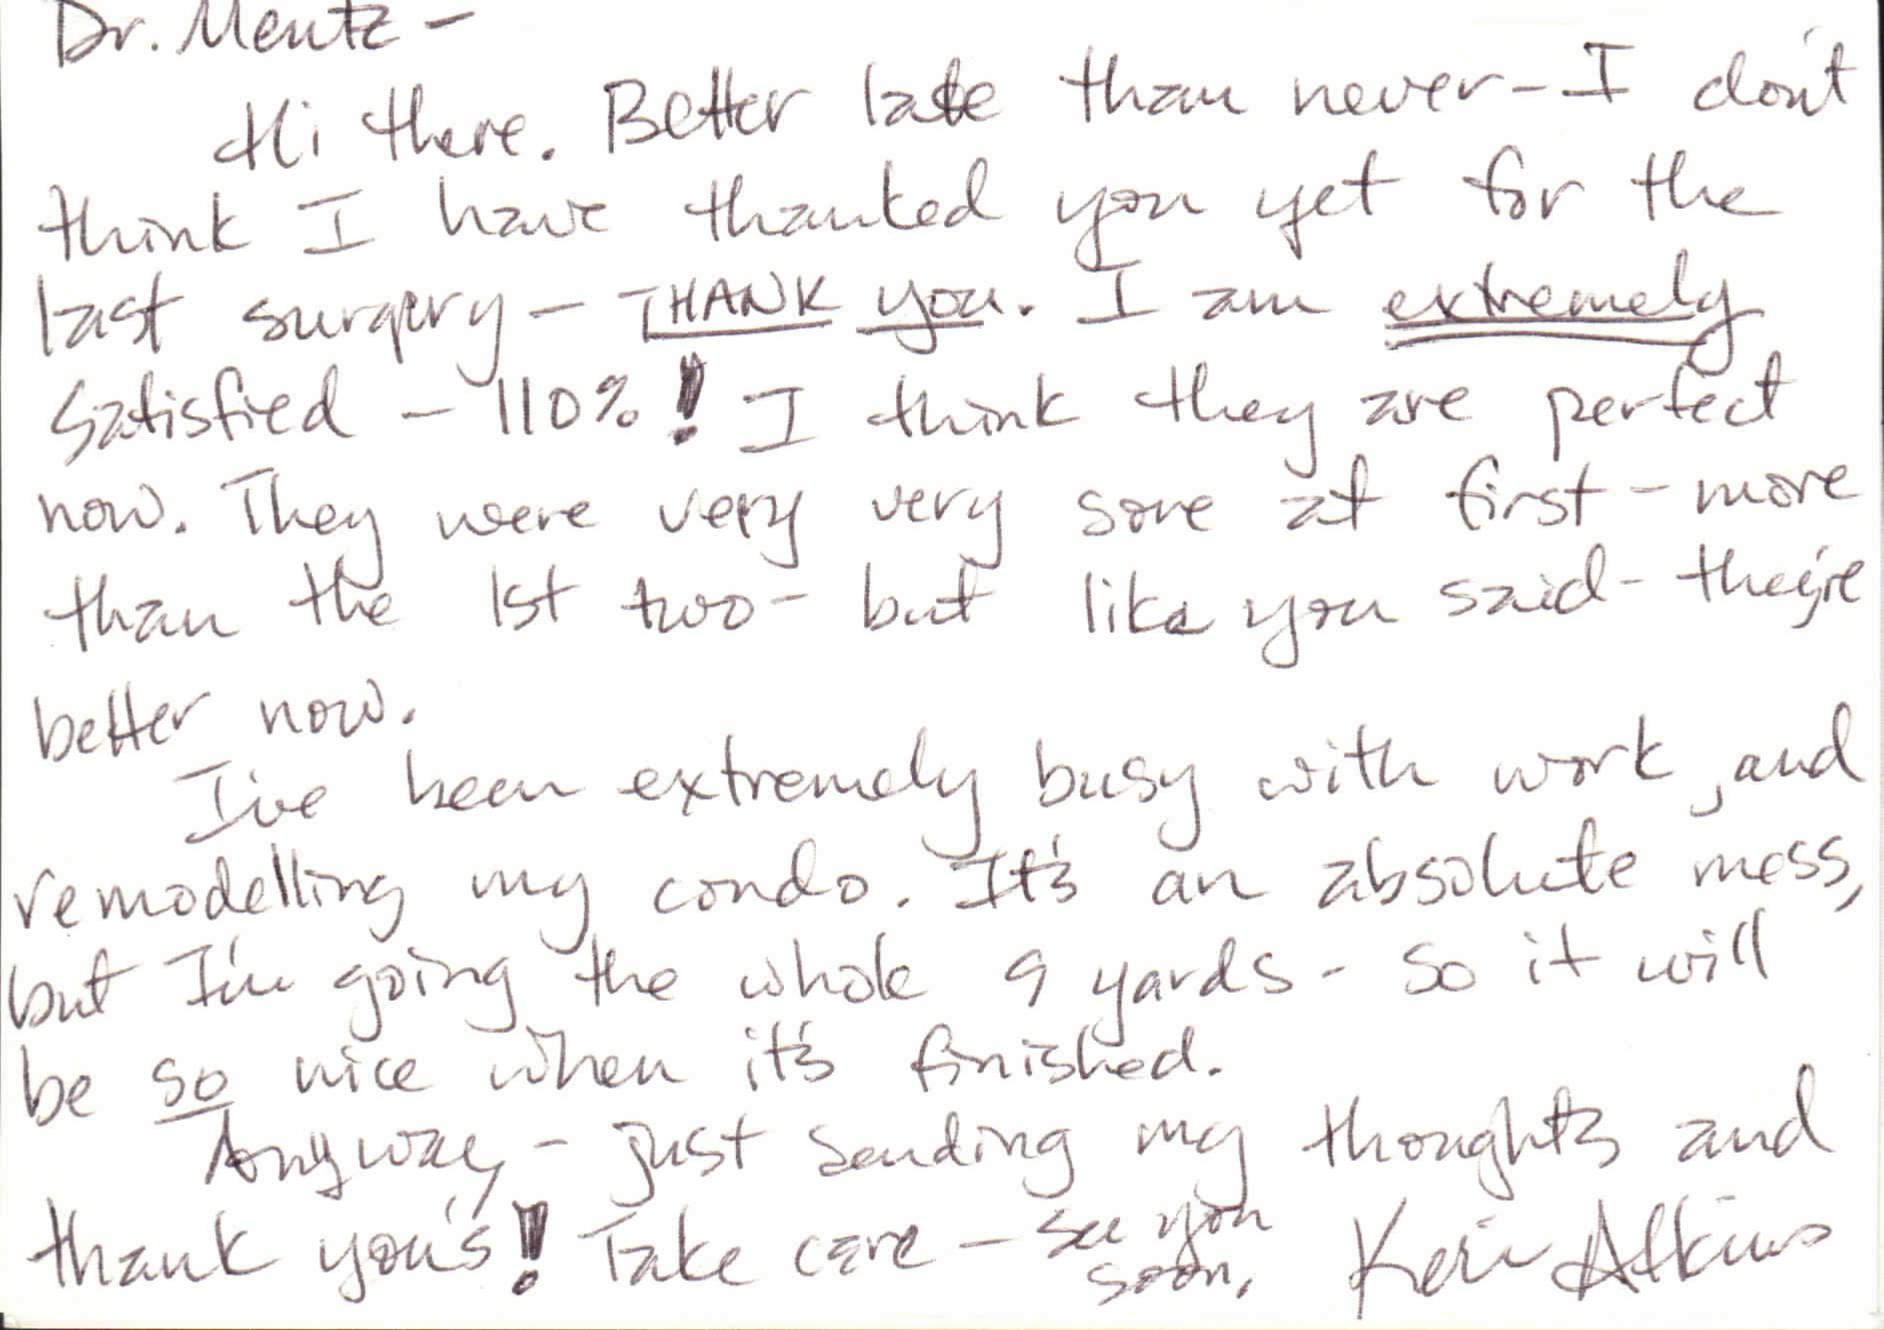 Dr. Mentz –
Hi there. Better late than never – I don't
think I have thanked you yet for the
last surgery – THANK you. I am extremely
satisfied – 110%! I think they are perfect
now. They were very very sore at first – more
than the 1st two – but like you said – they're
better now.
I've been extremely busy with work, and
remodelling my condo. It's an absolute mess,
but I'm going the whole 9 yards – so it will
be so nice when it's finished.
Anyway – just sending my thoughts and
thank you's! Take care – see you
soon, Keri Atkins